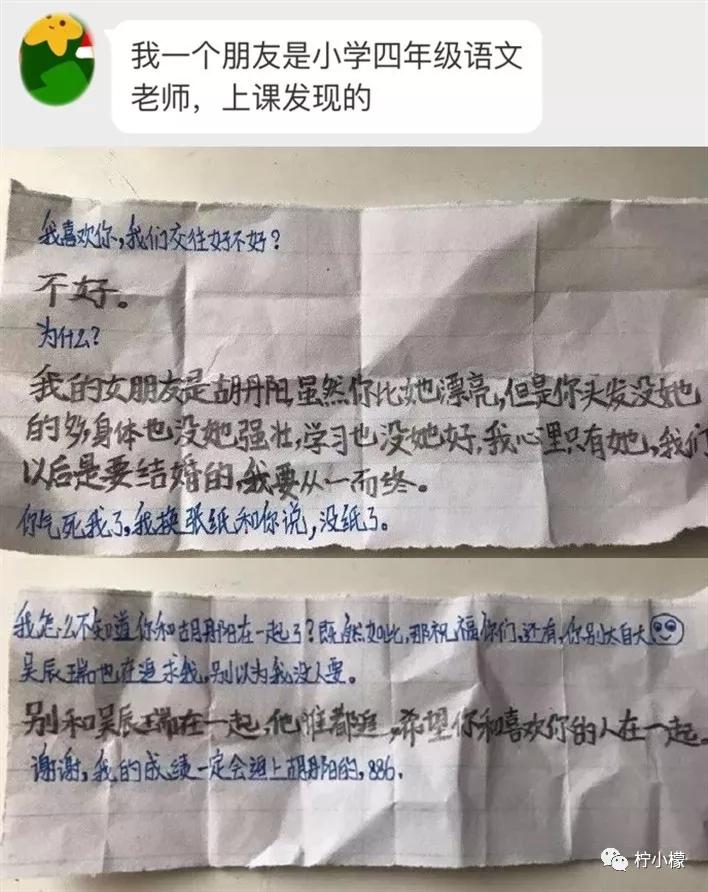 我一个朋友是小学四年级语文
老师，上课发现的
我喜欢你，我们交往好不好？
不好。
为什么？
我的女朋友是胡丹阳，虽然你比她漂亮，但是你头发没她
的多，身体也没她强壮，学习也没她好，我心里只有她，我们
以后是要结婚的，我要从一而终。
你气死我了，我换张纸和你说，没纸了。
我怎么不知道你和胡丹阳在一起了？既然如此，那祝福你们，还有，你别太自大
吴辰瑞也在追求我，别以为我没人要。
别和吴辰瑞在一起，他谁都追，希望你和喜欢你的人在一起。
谢谢，我的成绩一定会追上胡丹阳的，886.
柠小檬